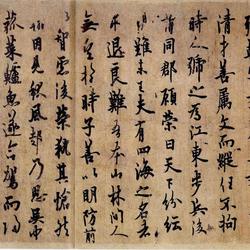 清才善屬文而縱任不拘
時人號之為江東步兵後
謂同郡顧榮曰天下紛紜
禍難未已夫有四海之名者
求退良難吾本山林間人
無望於時子善以明防前
以智慮後榮執其愴然
翰因見秋風起乃思吳中
菰菜鱸魚遂命駕而歸